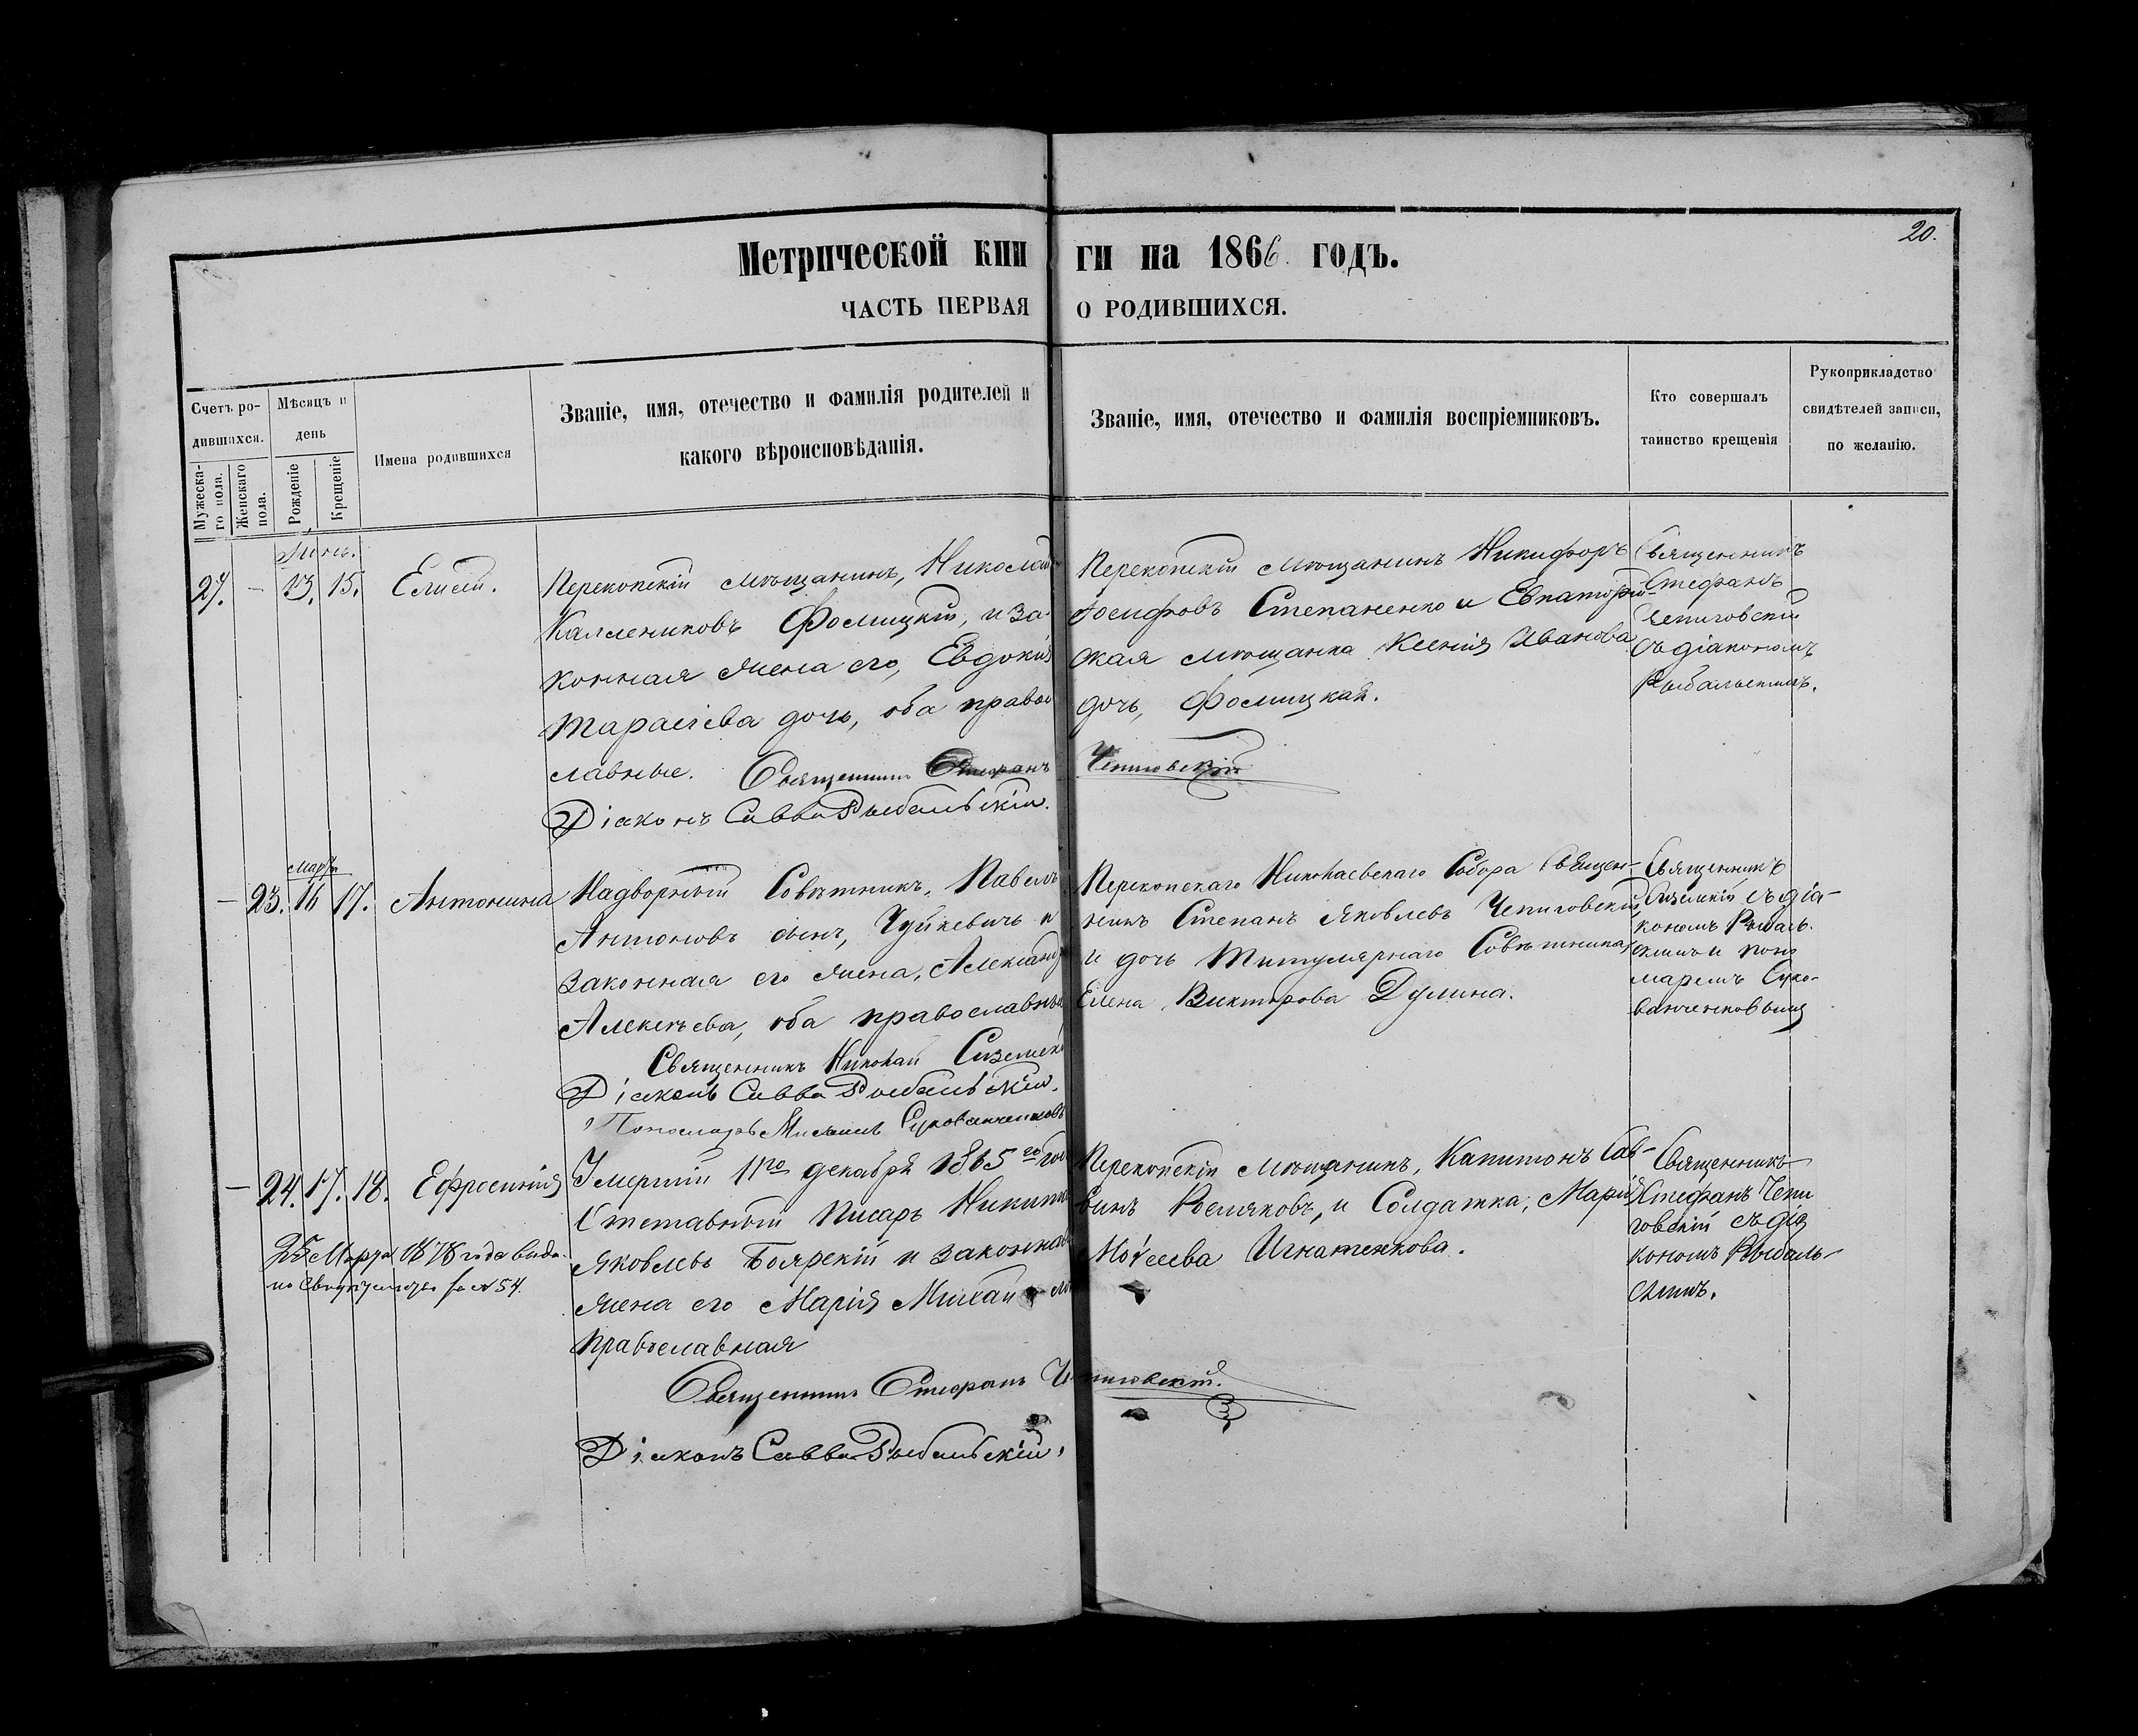 20.
Метрической кни ги на 1866 годъ.
ЧАСТЬ ПЕРВАЯ О РОДИВШИХСЯ.
Счетъ ро-
дившихся.
Мужеска-
го пола.
Женскаго
пола.
Мѣсяцъ и
день
Рожденіе
Крещеніе
Имена родившихся
Званіе, имя, отечество и фамилія родителей и
какого вѣроисповѣданія.
Званіе, имя, отечество и фамилія воспріемниковъ.
Кто совершалъ
таинство крещенія
Рукоприкладство
свидѣтелей записи,
по желанію.
27. — 13. 15. Елисей.
Перекопскій мѣщанинъ, Николай
Каллениковъ Фомицкій, и за-
конная жена его, Евдокія
Тарасіева дочь, оба право
славные. Священникъ Стефанъ Чепиговскій
Діаконъ Савва Рыбальскій.
Перекопскій мѣщанинъ Никифоръ
Іосифовъ Степаненко и Евпаторій-
ская мѣщанка Ксенія Иванова
дочь, Фомицкая.
Священникъ
Стефанъ
Чепиговскій
съ діакономъ
Рыбальскимъ.
Марта
— 23. 16 17. Антонина
Надворный Совѣтникъ, Павелъ
Антоновъ сынъ, Чуйкевичъ и
законная его жена, Александ
Алексѣева, оба православны
Священникъ Николай
Діаконъ Савва Рыбальскій.
Пономарь
Перекопскаго Николаевскаго Собора Священ-
никъ Степанъ Яковлевъ Чепиговскій,
и дочь Титулярнаго Совѣтника,
Елена Викторова Дулина.
Священникъ
съ діа-
кономъ Рыбаль-
скимъ и поно
маремъ Суко-
ванченковымъ
— 24. 17. 18. Ефросинія
25 Марта 1878 года выда-
но свидѣтельство за № 54.
Умершій 11го декабря 1865 го го
Отставный Писарь Никита
Яковлевъ Боярскій и законная
жена его Марія Михайло
православная
Священникъ Стефанъ Чепиговскій.
Діаконъ Савва Рыбальскій.
Перекопскій мѣщанинъ, Капитонъ Сав-
винъ и Солдатка, Марія
Моѵсеева Игнатенкова.
Священникъ
Стефанъ Чепи
говскій съ діа
кономъ Рыбаль-
скимъ.